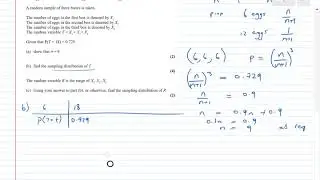 A random sample of three boxes is taken.
The number of eggs in the first box is denoted by X₁
The number of eggs in the second box is denoted by X₂
The number of eggs in the third box is denoted by X₃
The random variable T = X₁ + X₂ + X₃
Given that P(T = 18) = 0.729
(a) show that n = 9
(b) find the sampling distribution of T
The random variable R is the range of X₁, X₂, X₃
(c) Using your answer to part (b), or otherwise, find the sampling distribution of R
6 eggs n/n+1
12 eggs 1/n+1
(6, 6, 6) P = (n/n+1)³
(n/n+1)³ = 0.729
n/n+1 = 0.9
n = 0.9n + 0.9
0.1n = 0.9
n = 9 as req
b) 6 18
P(T=t) 0.729